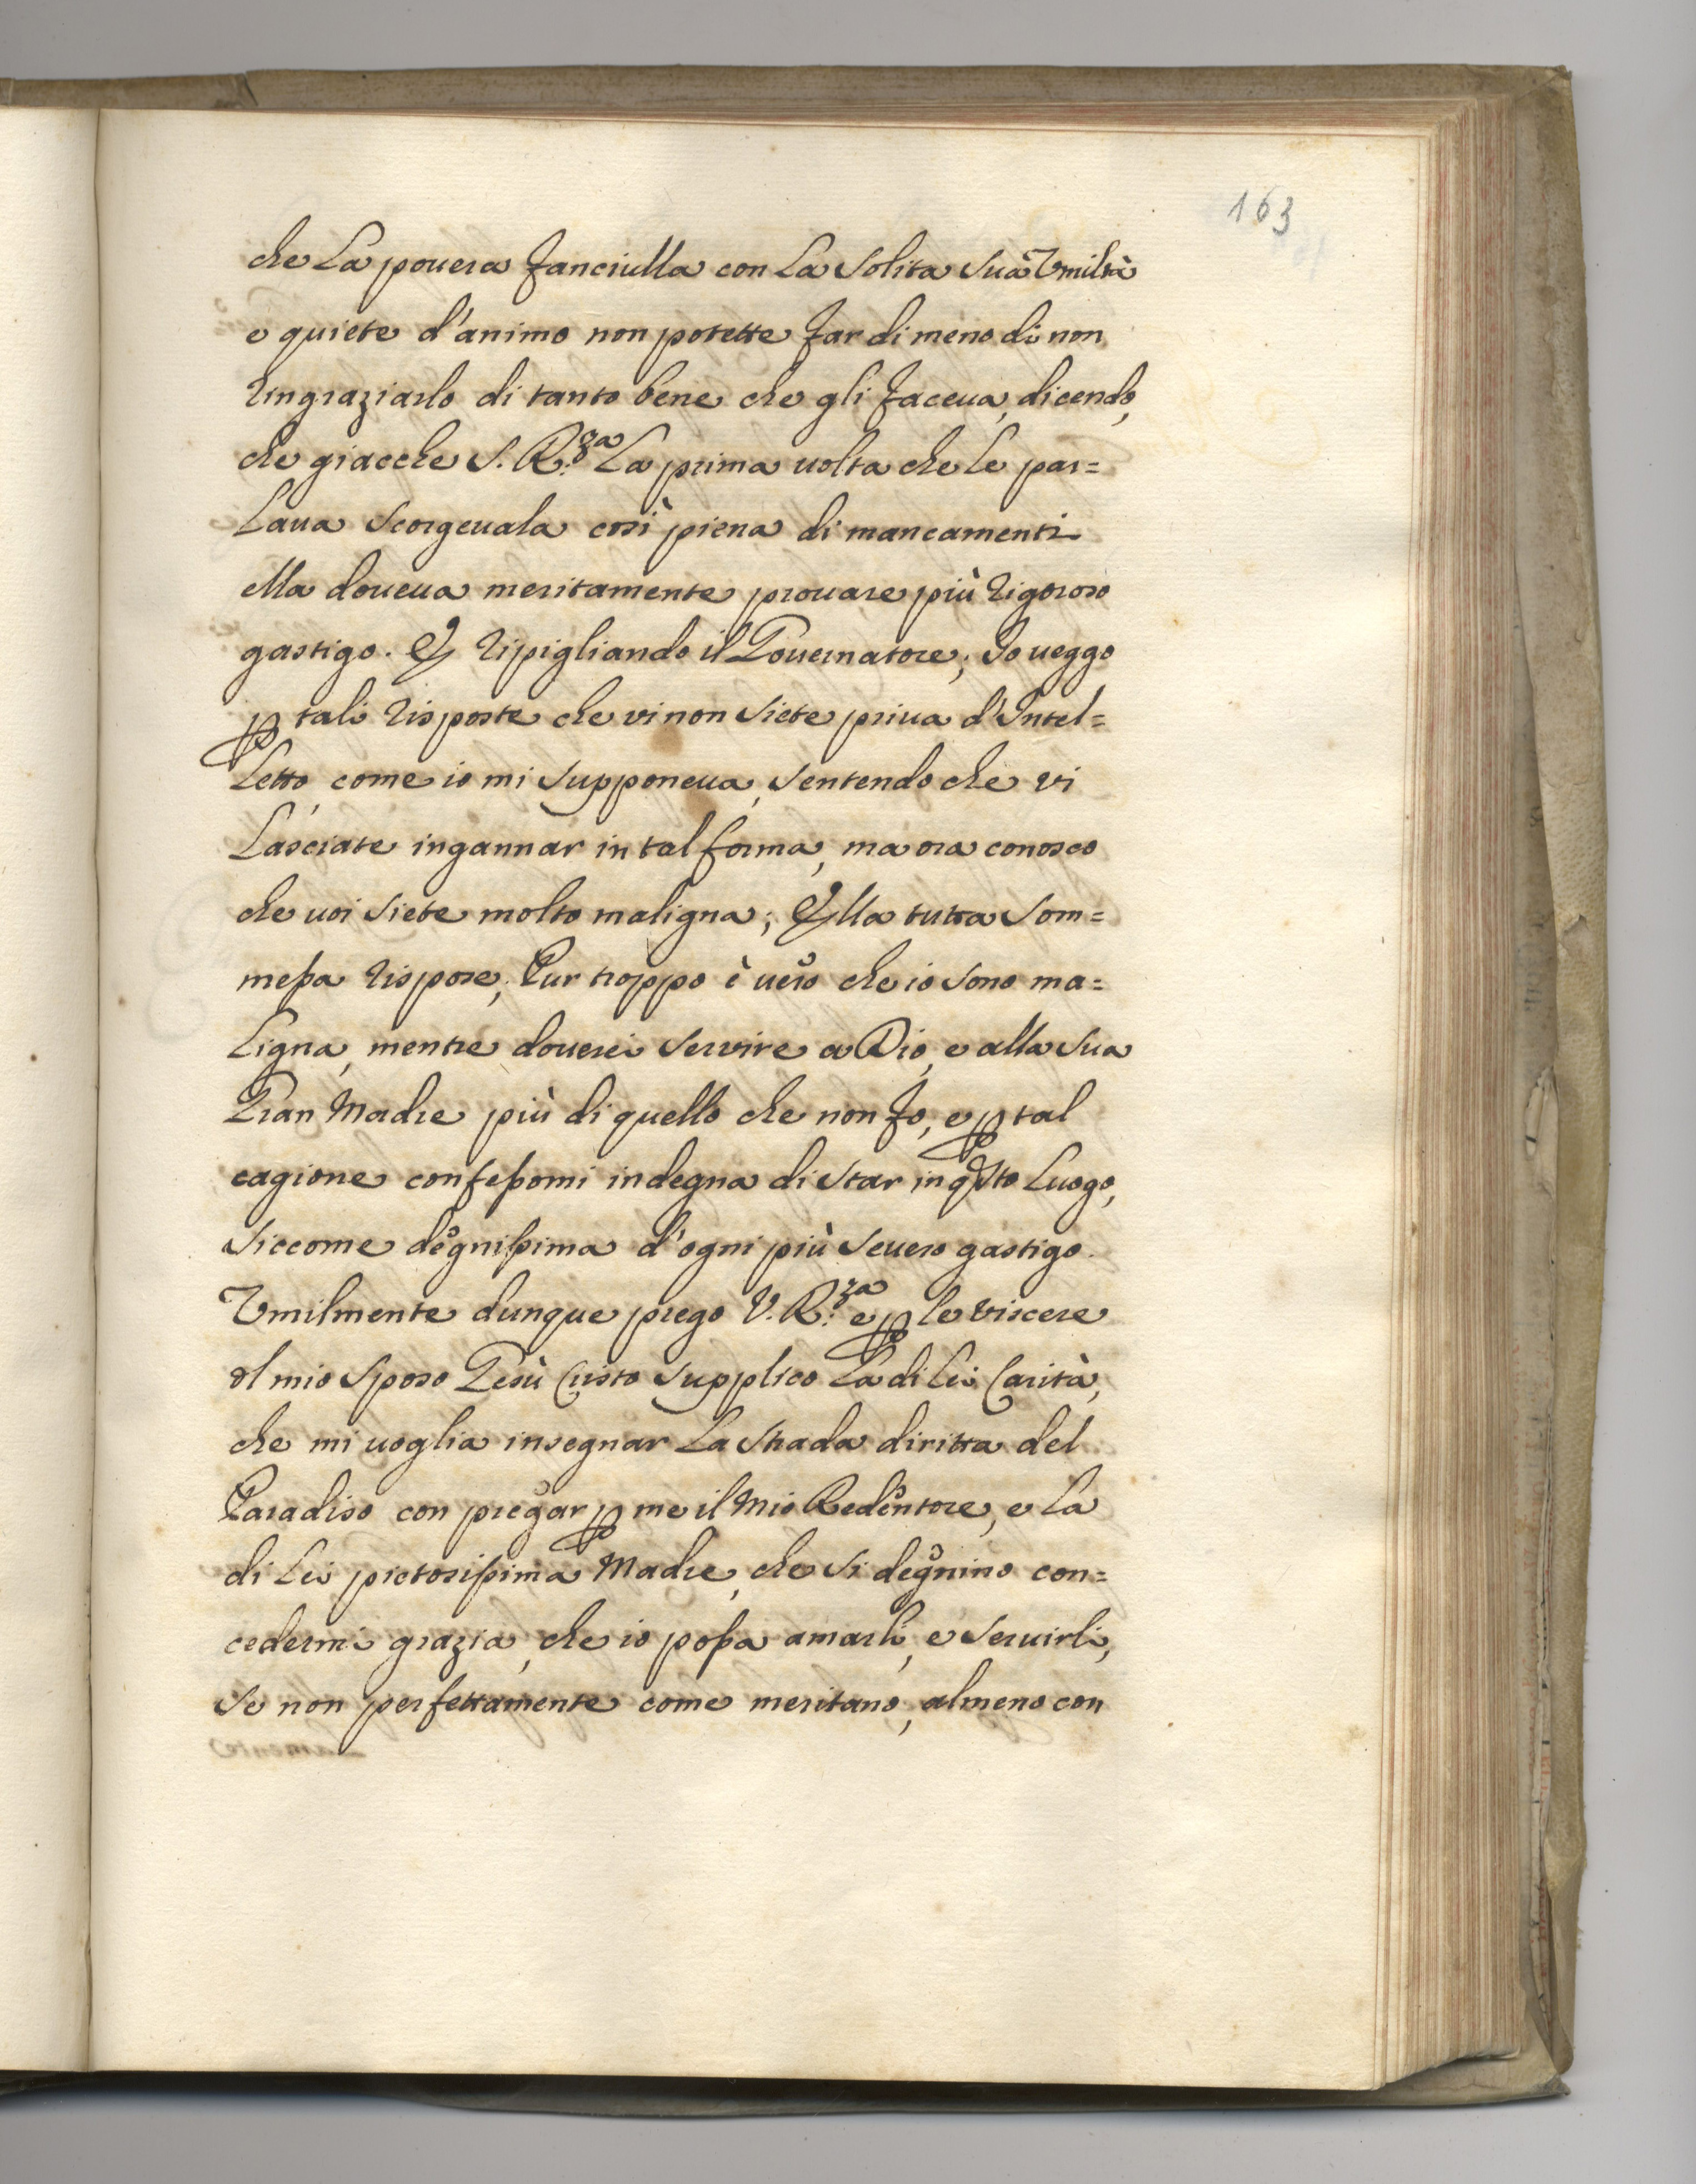 163
che La pouera fanciulla con La Solita Sua Vmiltà
e quiete d'animo non potette far di meno di non
ringraziarlo di tanto bene che gli faceua, dicendo,
che giacche S. R.za La prima uolta che Le par=
Laua Scorgeuala così piena di mancamenti
ella doueua meritamente prouare più rigoroso
gastigo. E ripigliando il Gouernatore; Io ueggo
p tali risposte che vi non Siete priua d'Intel=
Letto, come io mi Supponeua, Sentendo che vi
Lasciate ingannar in tal forma, ma ora conosco
che uoi Siete molto maligna; Ella tutta Som=
meßa rispose; Pur troppo è uero che io Sono ma=
Ligna, mentre douerei Servire a Dio, e alla Sua
Gran Madre più di quello che non fo, e p tal
cagione confeßomi indegna di Star in qsto Luogo,
Siccome degnißima d'ogni più Seuero gastigo.
Vmilmente dunque prego V. R.za e p le viscere
dl mio Sposo Gesù Cristo Supplico La di Lei Carità,
che mi uoglia insegnar La Strada diritta del
Paradiso con pregar p me il Mio Redentore, e La
di Lei pietosißima Madre, che Si degnino con=
cedermi grazia, che io poßa amarli, e Seruirli,
Se non perfettamente come meritano, almeno con